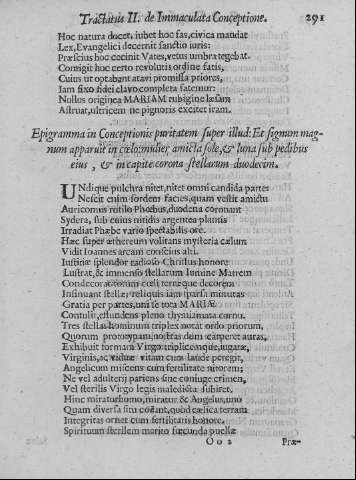 Tractatus II. de Immaculata Conceptione. 291
Hoc natura docet, iubet hoc fas, civica mandat
Lex, Evangelici decernit sanctio iuris:
Præscius hoc cecinit Vates, vetus umbra tegebat.
Contigit hoc certo revolutis ordine fatis,
Cuius ut optabant atavi promissa priores,
Iam fixo fidei clavo completa fatemur:
Nullus originea MARIAM rubigine læsam
Astruat, ultricem ne pignoris excitet iram.
Epigramma in Conceptionis puritatem super illud: Et signum mag-
num apparuit in cœlo: mulier amicta sole, & luna sub pedibus
eius, & in capite corona stellarum duodecim.
UNdique pulchra nitet, nitet omni candida parte:
Nescit enim sordem facies, quam vestit amictu
Auricomus rutilo Phœbus, duodena coronant
Sydera, sub cuius nitidis argentea plantis
Irradiat Phœbe vario spectabilis ore.
Hæc super æthereum volitans mysteria cælum
Vidit Ioannes arcani conscius alti.
Iustitiæ splendor radioso Christus honore
Lustrat, & immenso stellarum lumine Matrem
Condecorat: quorum cœli terræque decorem
Insinuant stellæ, reliquis iam sparsa minutas
Gratia per partes, uni se tota MARIÆ
Contulit, effundens pleno thymiamata cornu.
Tres stellas hominum triplex notat ordo priorum,
Quorum pronœpam, nostras dum carperet auras,
Exhibuit formam Virgo triplicemque, iugatæ,
Virginis, ac viduæ vitam cum laude peregit,
Angelicum miscens cum fertilitate nitorem:
Ne vel adulterij pariens sine coniuge crimen,
Vel sterilis Virgo legis maledicta subiret.
Hinc miratur homo, miratur & Angelus, uno
Quam diversa situ constant, quod cælica terram
Integritas ornet cum fertilitatis honore.
Spirituum sterilem merito fœcunda puellæ
Oo2 Præ-